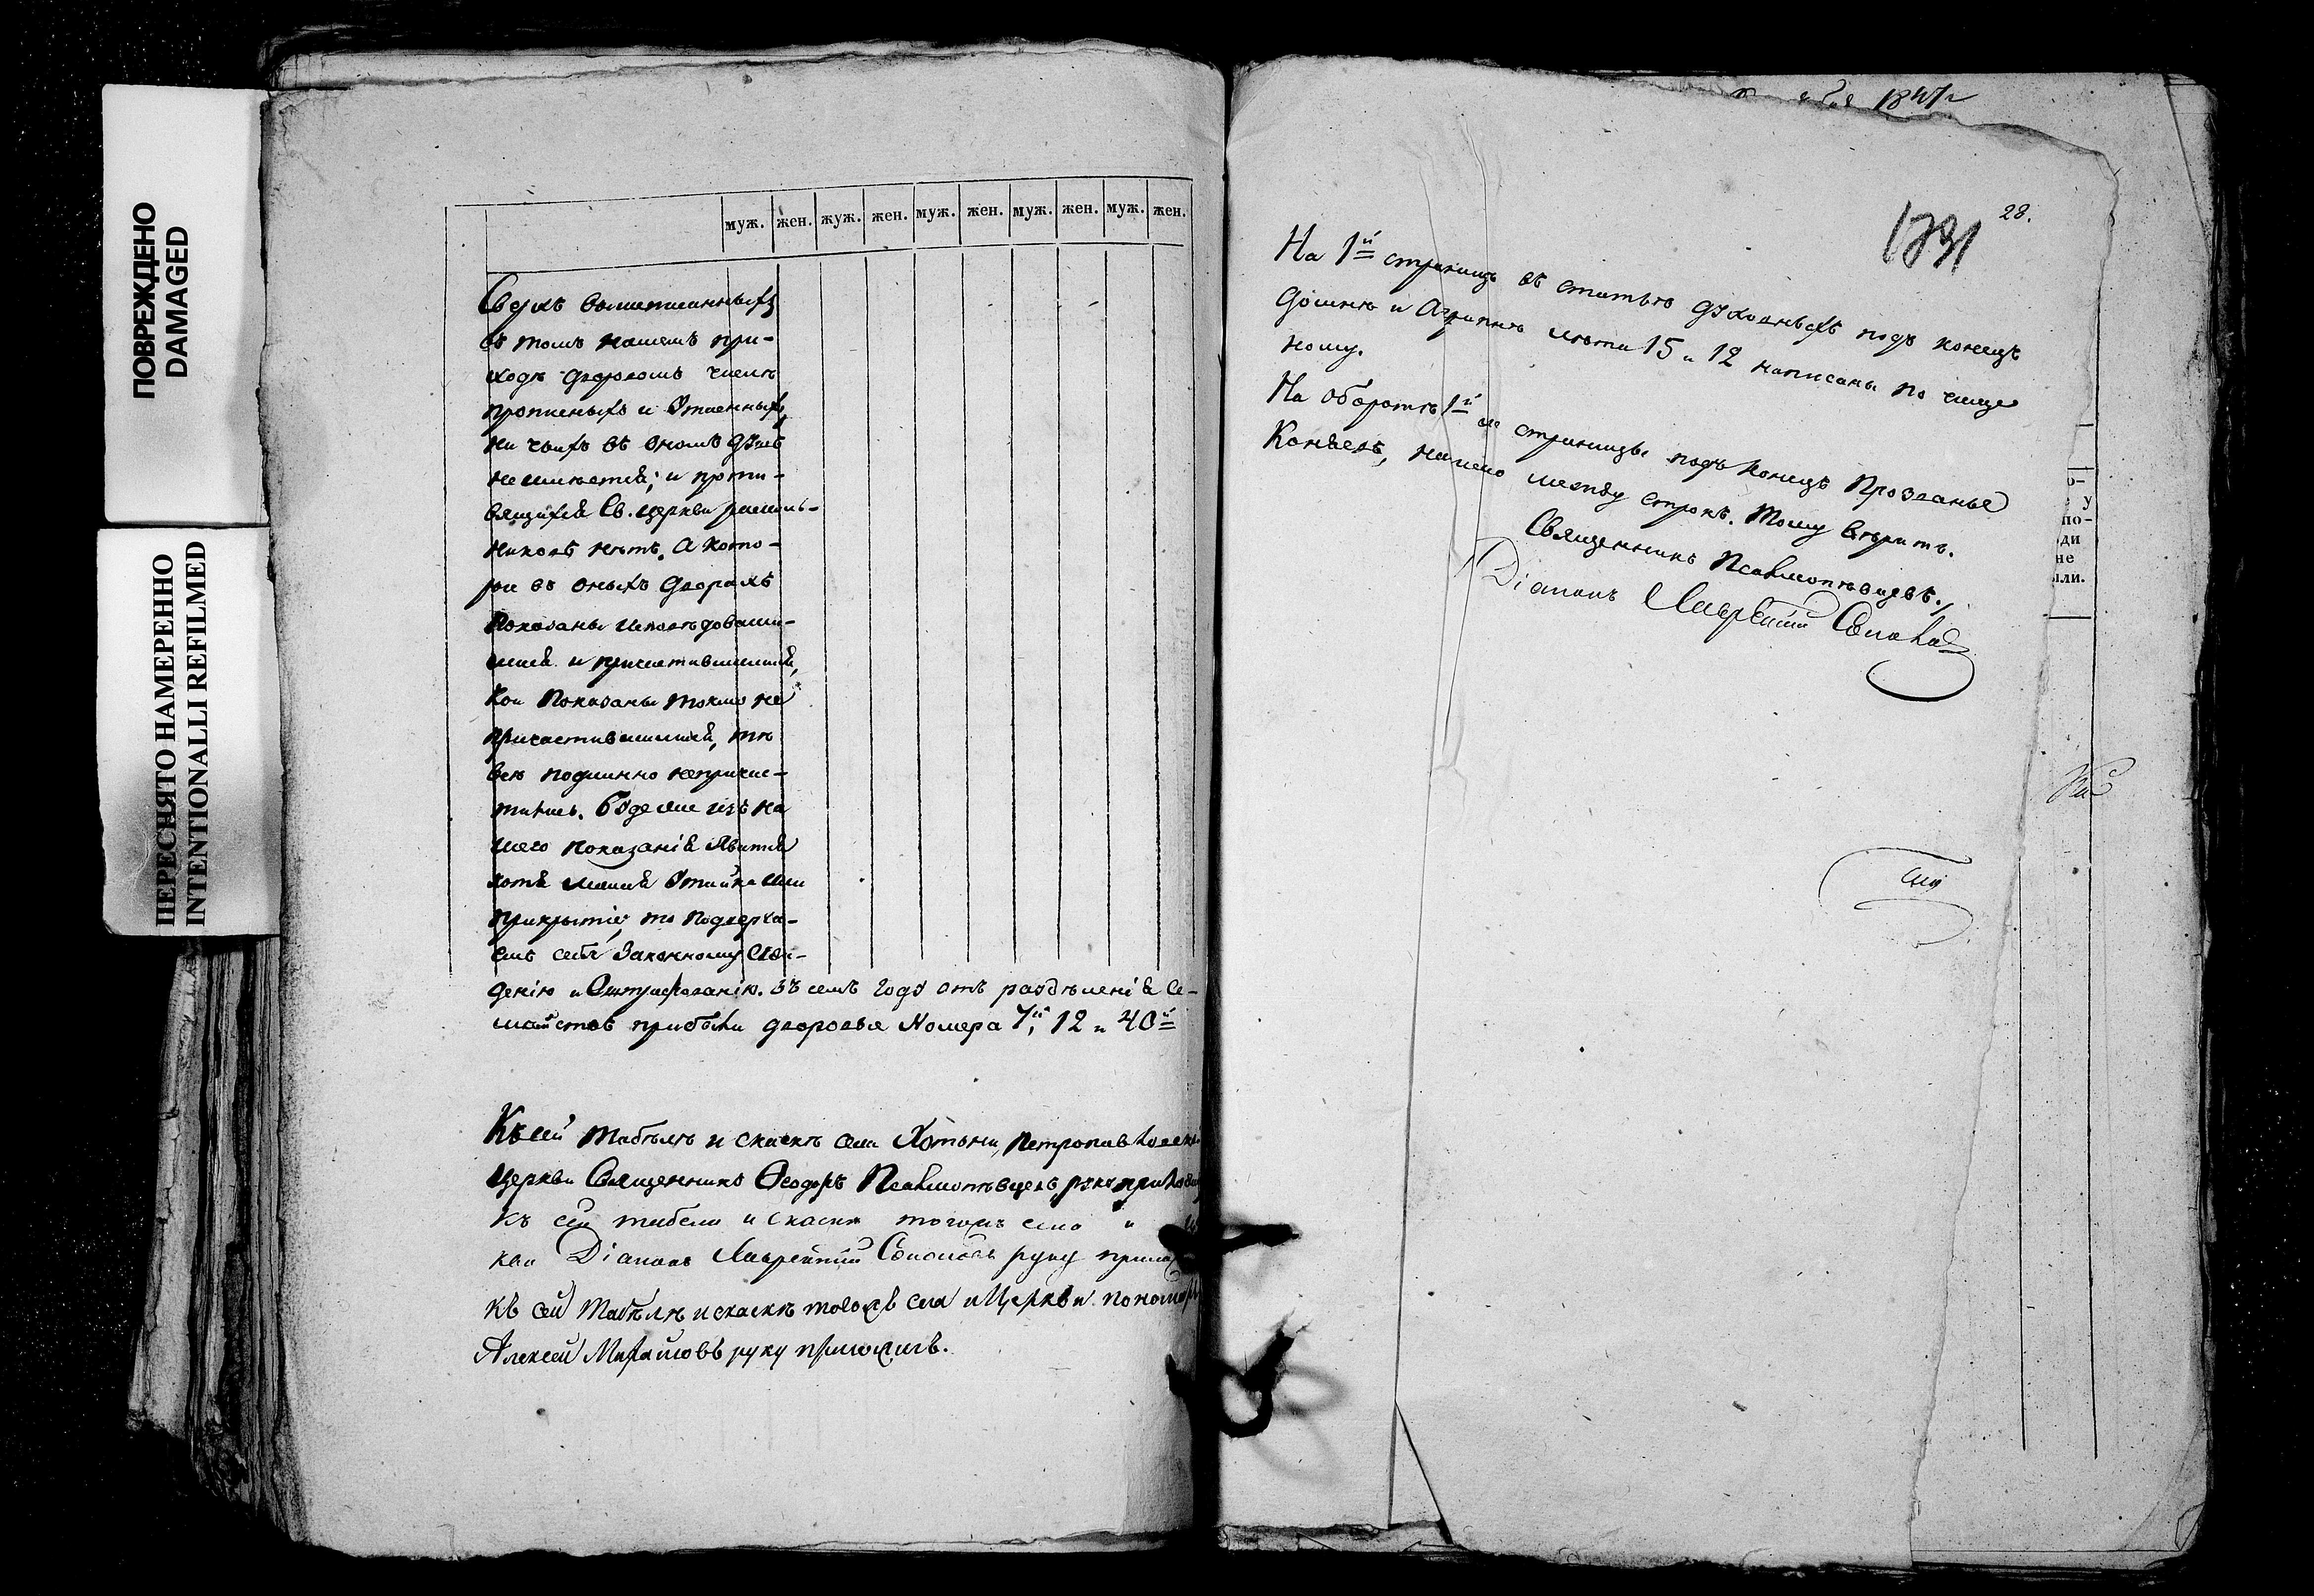 ПОВРЕЖДЕНО
DAMAGED
ПЕРЕСНЯТО НАМЕРЕННО
INTENTIONALLI REFILMED
муж. жен. жуж. жен. муж. жен. муж. жен. муж. жен.
Сверхъ вышеписанныхъ
въ томъ нашемъ при-
ходѣ дворовомъ числѣ
прописныхъ и Утаенныхъ,
ни чьихъ въ ономъ душъ
неимѣется; и проти-
вящихся Св. церкви
никовъ нѣтъ. А кото-
рые въ оныхъ дворахъ
Показаны исповѣдовавши-
мися и причастившимися,
Кои Показаны токмо не
причастившимися, тѣ
всѣ подлинно непричас-
тились. Буде же изъ на
шего показанія Явится
хотя малая Утайка или
прикрытіе, то Подверга-
емъ себя Законному Суж-
денію и Оштрафованію. Въ семъ году отъ раздѣленія Се-
мействъ прибыли дворовые Номера 7й, 12 и 40й
Къ сей табѣлѣ и скаскѣ села Хотьни, Петропавловской
Церкви Священникъ Ѳеодоръ Псалмопѣвцевъ руку
къ сей табели и скаскѣ тогожъ села и
кви Діаконъ Лаврентій руку
Къ сей табѣлѣ и скаскѣ тогожъ села и Церкви пономарь
Алексей Михайловъ руку приложилъ.
1841
28.
1791
На 1й страницѣ въ статьѣ духовныхъ подъ конецъ
и Агрипинѣ лѣта 15 и 12 написаны по чище
ному.
На оборотѣ 1й же страницы подъ конецъ Прозванье
между строкъ. Тому вѣрить.
Священникъ Псалмопѣвцевъ.
Діаконъ Лаврентій
о-
у
по-
ди
не
ли.